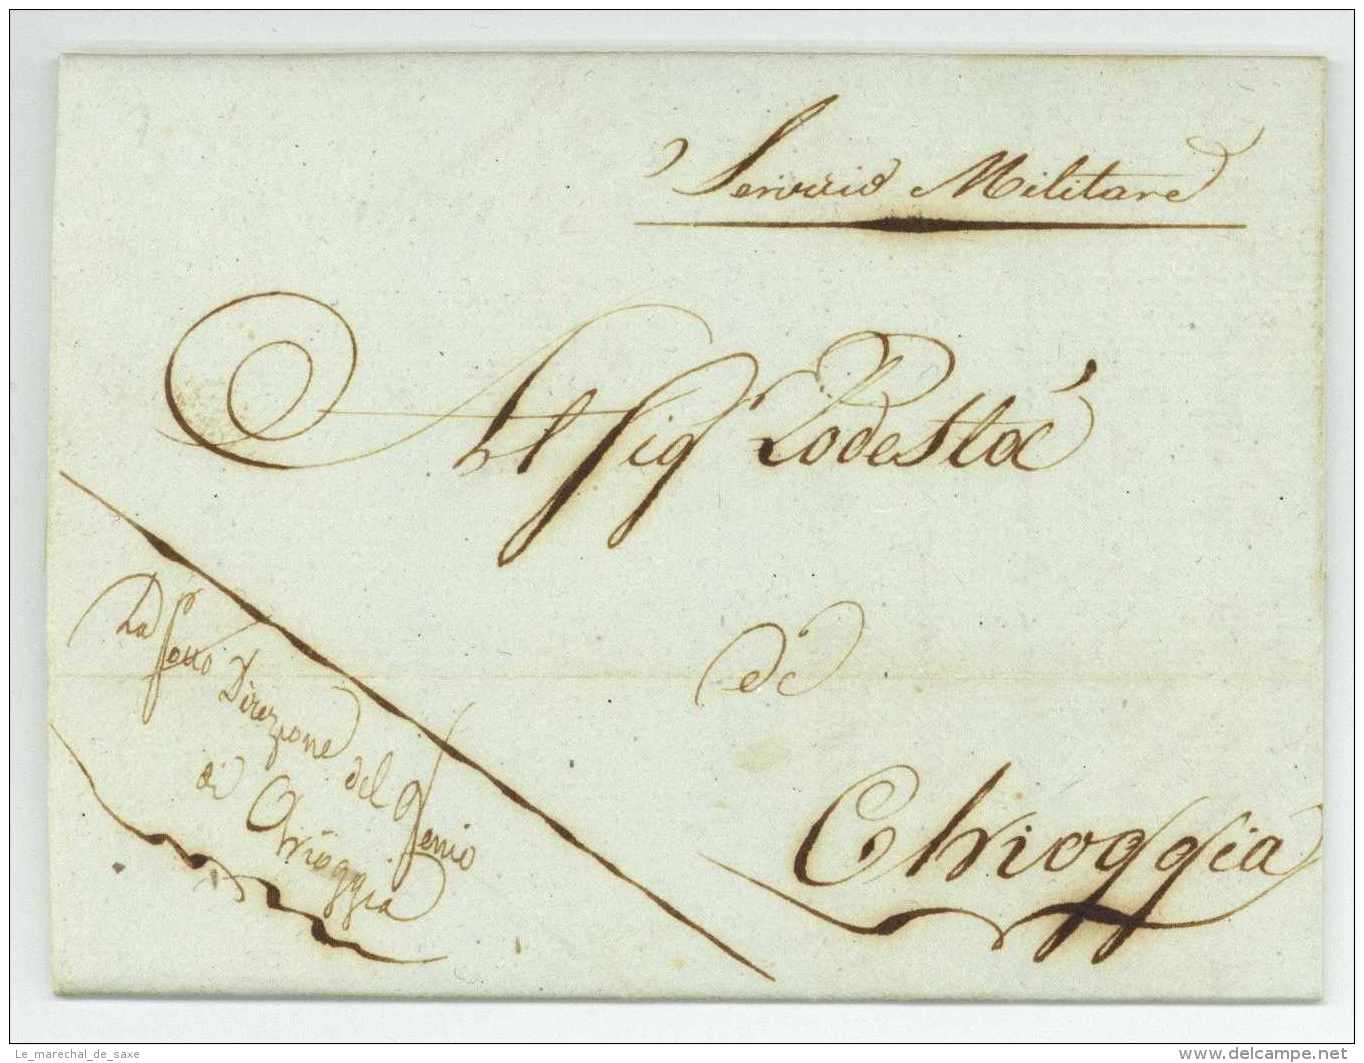 Servizio Militare
Al Sig Podestá
di
Chioggia
La Sotto Direzione del Genio
di Chioggia
Le_marechal_de_saxe
www.delcampe.net